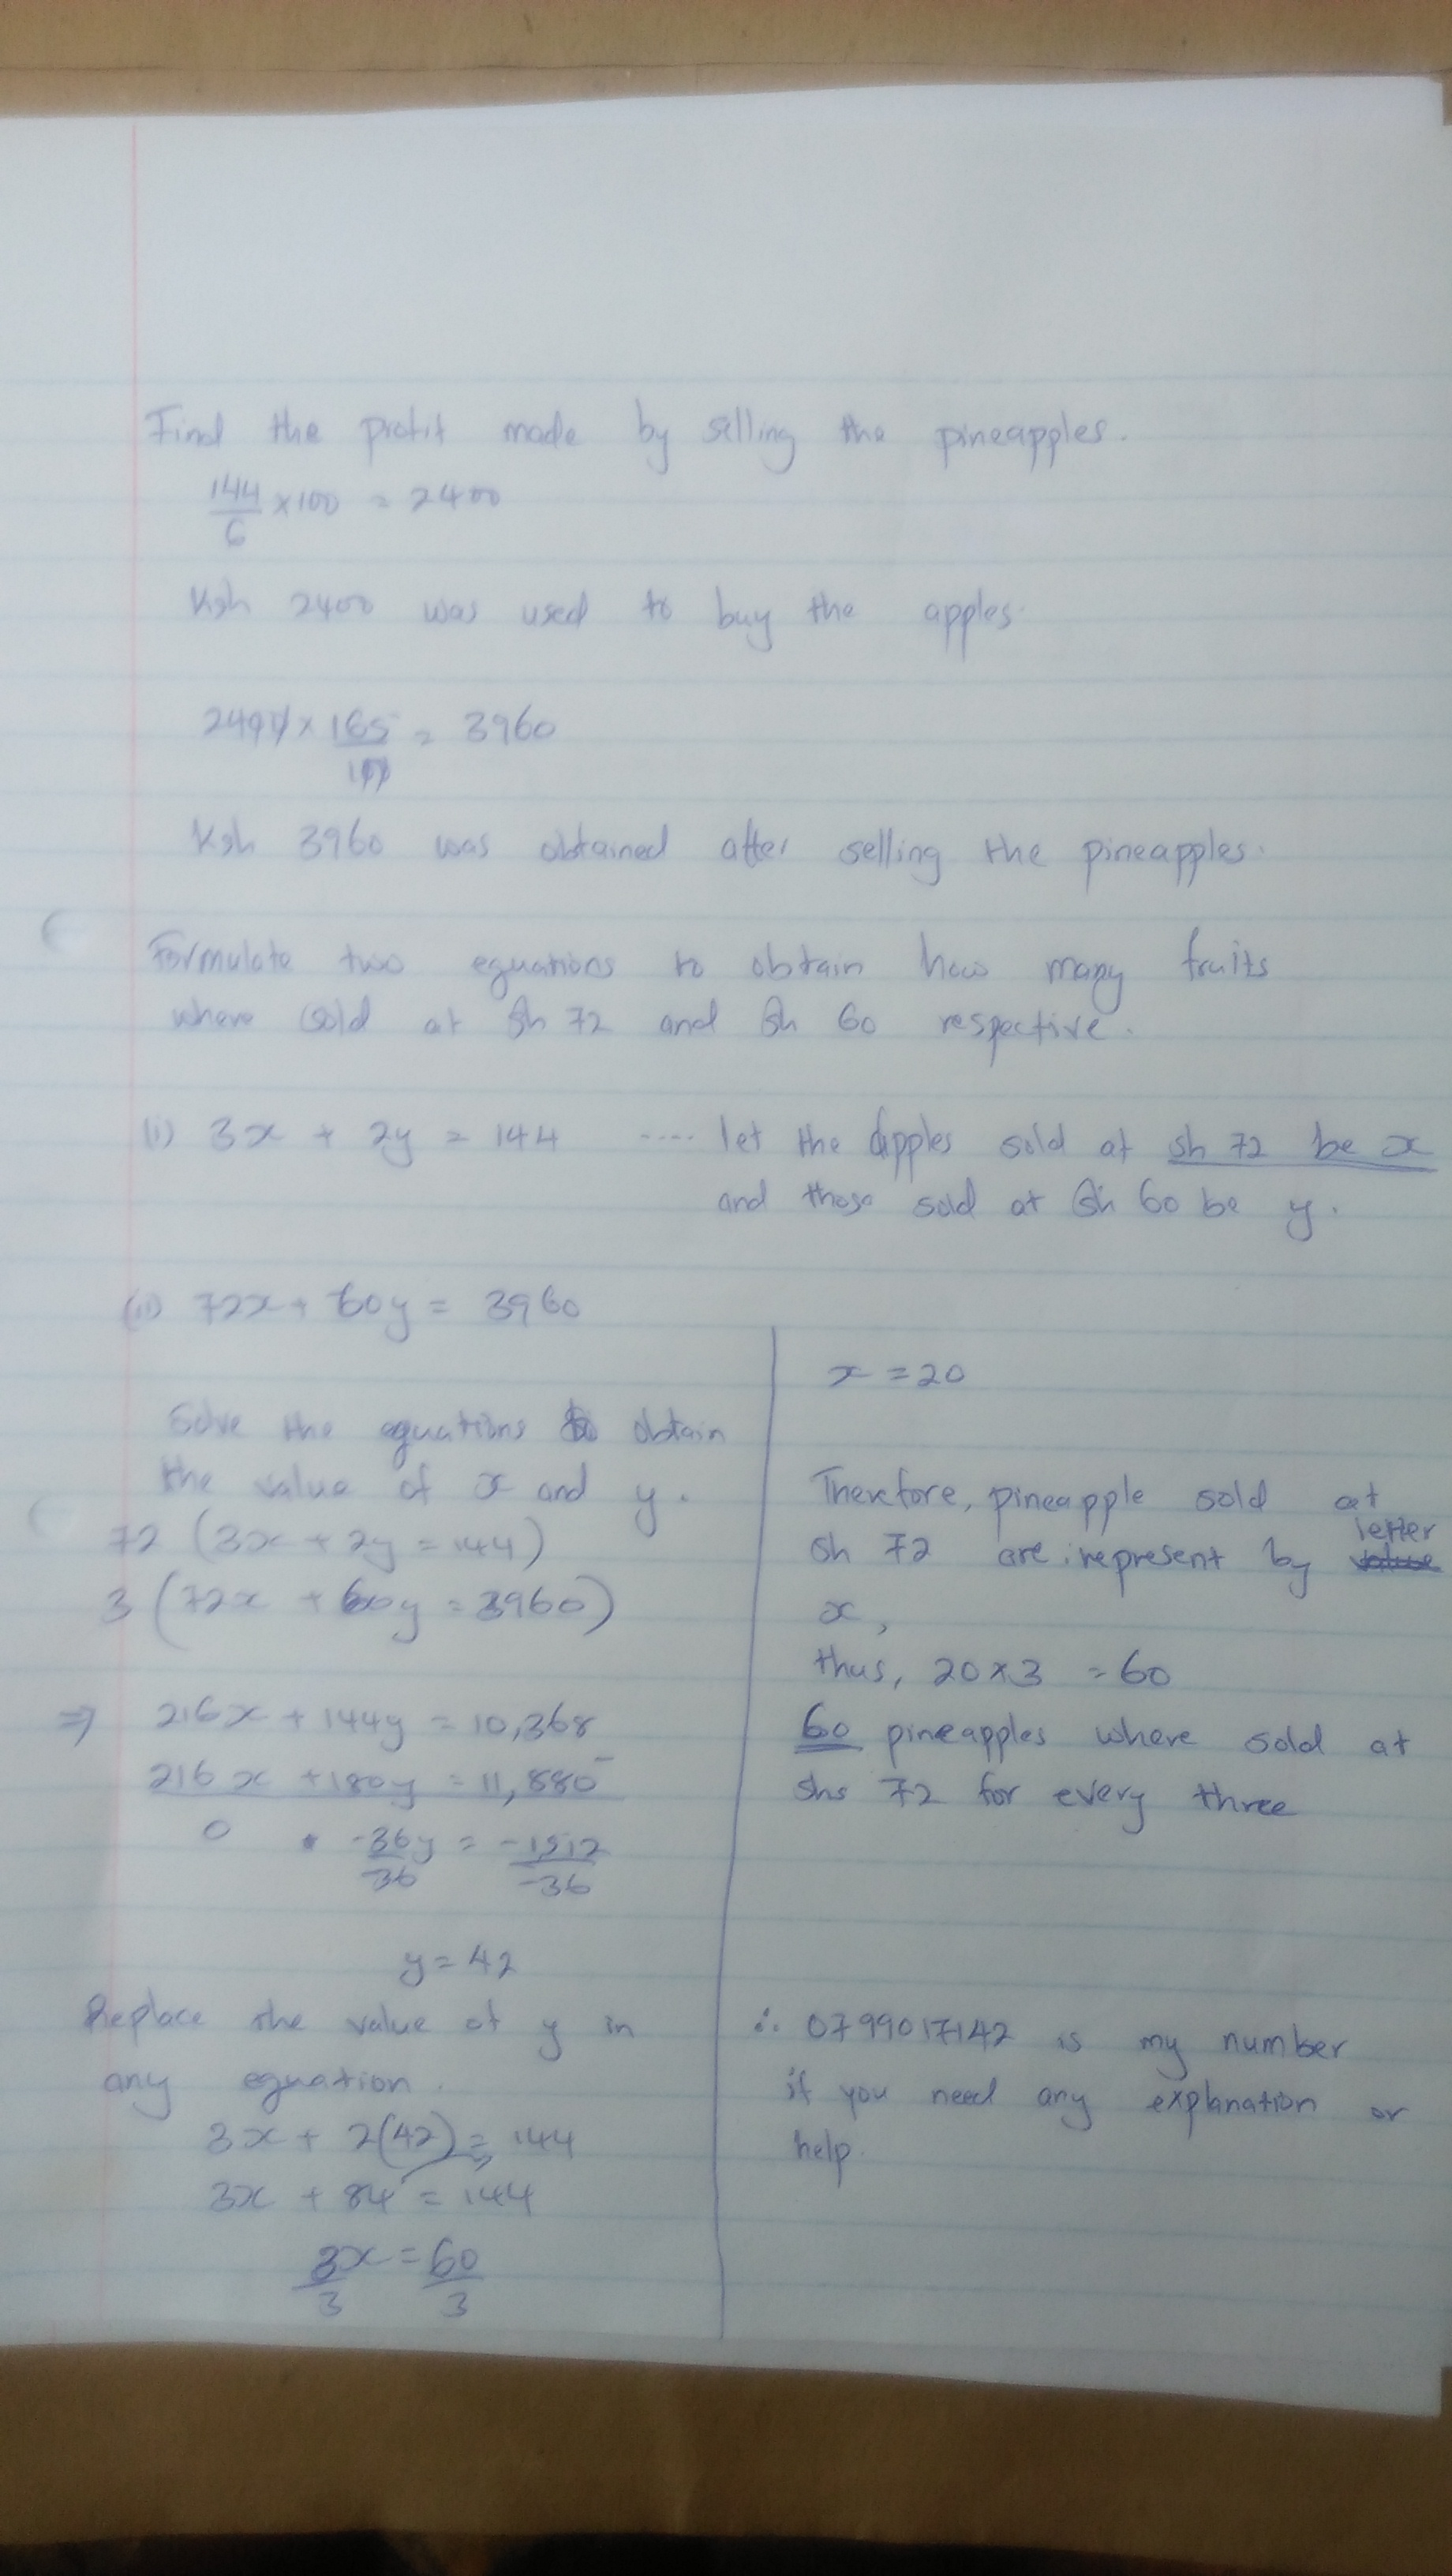 Find the profit made by selling the pineapples.
144/6 × 100 = 2400
Ksh 2400 was used to buy the apples.
2400 × 165/100 = 3960
Ksh 3960 was obtained after selling the pineapples.
Formulate two equations to obtain how many fruits
where sold at Sh 72 and Sh 60 respective.
(i) 3x + 2y = 144 .... let the apples sold at sh 72 be x
and those sold at Sh 60 be y.
(ii) 72x + 60y = 3960
Solve the equations to obtain
the value of x and y.
72 (3x + 2y = 144)
3 (72x + 60y = 3960)
⇒ 216x + 144y = 10,368
216x + 180y = 11,880 -
0 -36y/-36 = -1512/-36
y = 42
Replace the value of y in
any equation.
3x + 2(42) = 144
3x + 84 = 144
3x/3 = 60/3
x = 20
Therefore, pineapple sold at
sh 72 are represent by letter
x,
thus, 20 × 3 = 60
60 pineapples where sold at
shs 72 for every three
∴ 0799017142 is my number
if you need any explanation or
help.